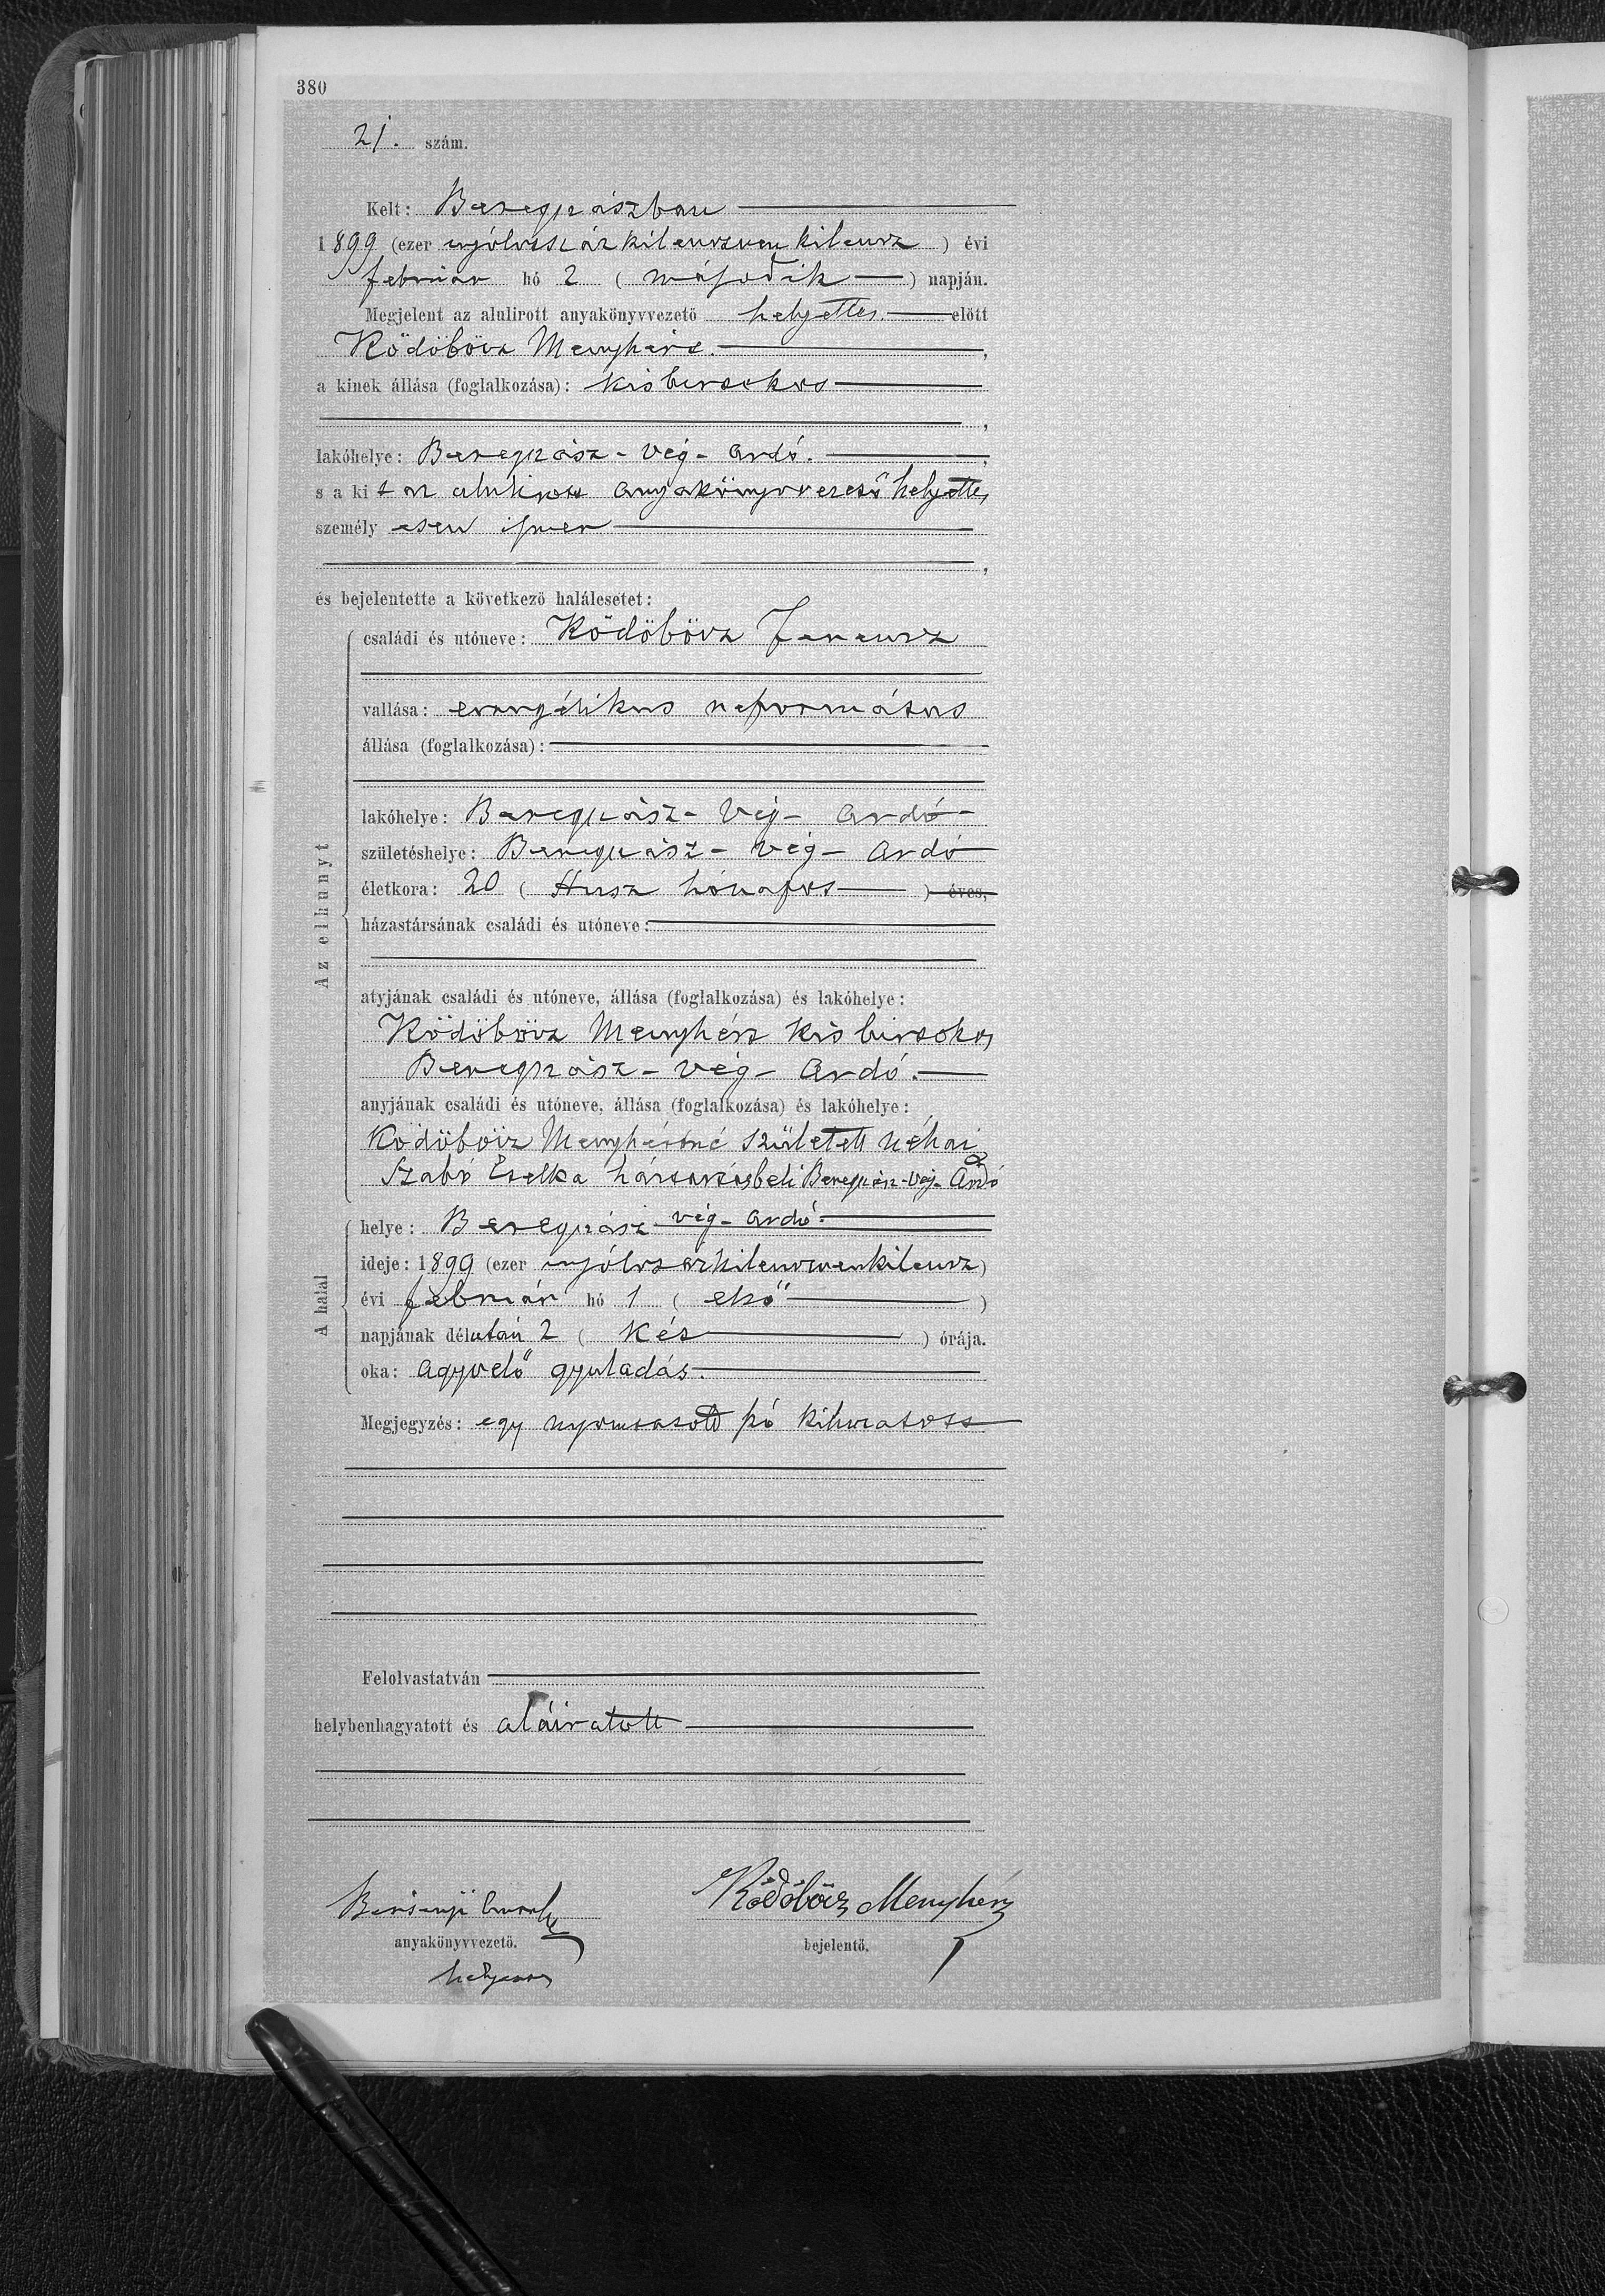 380
21. szám.
Kelt: Beregszászban
1899 (ezer nyolcszázkilenczvenkilencz) évi
február hó 2 (második) napján.
Megjelent az alulirott anyakönyvvezető helyettes. előtt
Ködöböcz Menyhért.,
a kinek állása (foglalkozása): kisbirtokos
,
lakóhelye: Beregszász-Vég-Ardó.,
s a kit az alulirott anyakönyvvezető helyettes
személyesen ismer
,
és bejelentette a következő halálesetet:
Az elhunyt
családi és utóneve: Ködöböcz Ferencz
vallása: evangélikus református
állása (foglalkozása):
lakóhelye: Beregszász-Vég-Ardó
születéshelye: Beregszász-Vég-Ardó
életkora: 20 (Husz hónapos) éves,
házastársának családi és utóneve:
atyjának családi és utóneve, állása (foglalkozása) és lakóhelye:
Ködöböcz Menyhért kisbirtokos
Beregszász-Vég-Ardó.
anyjának családi és utóneve, állása (foglalkozása) és lakóhelye:
Ködöböcz Menyhértné született néhai
Szabó Etelka háztartásbeli Beregszász-Vég-Ardó
A halál
helye: Beregszász-Vég-Ardó.
ideje: 1899 (ezer nyólczszázkilenczvenkilencz)
évi február hó 1 (első)
napjának délután 2 (két) órája.
oka: agyvelő gyuladás.
Megjegyzés: egy nyomtatott szó kihuzatott
Felolvastatván
helybenhagyatott és aláiratott
anyakönyvvezető.
helyettes
Ködöböcz Menyhért
bejelentő.